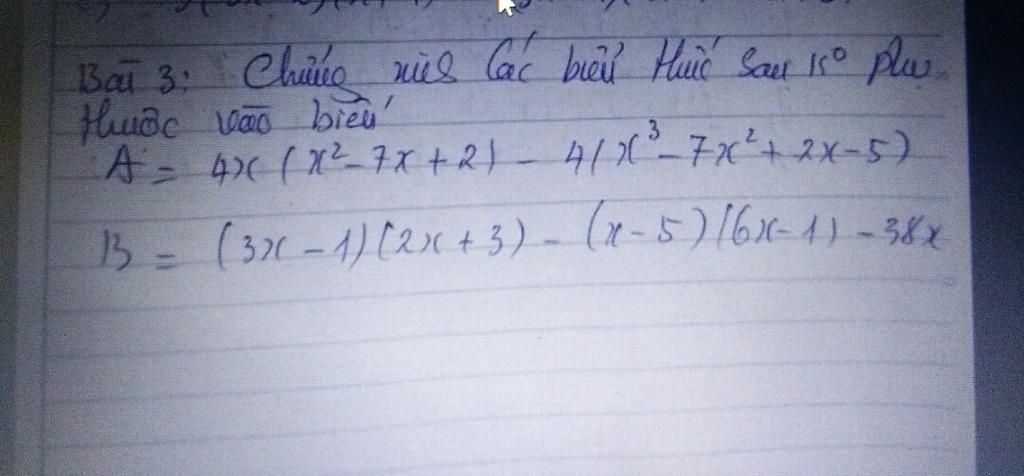 Bài 3: Chứng minh Các biểu thức sau k° phụ
thuộc vào biến
A = 4x(x² - 7x + 2) - 4(x³ - 7x² + 2x - 5)
B = (3x - 1)(2x + 3) - (x - 5)(6x - 1) - 38x